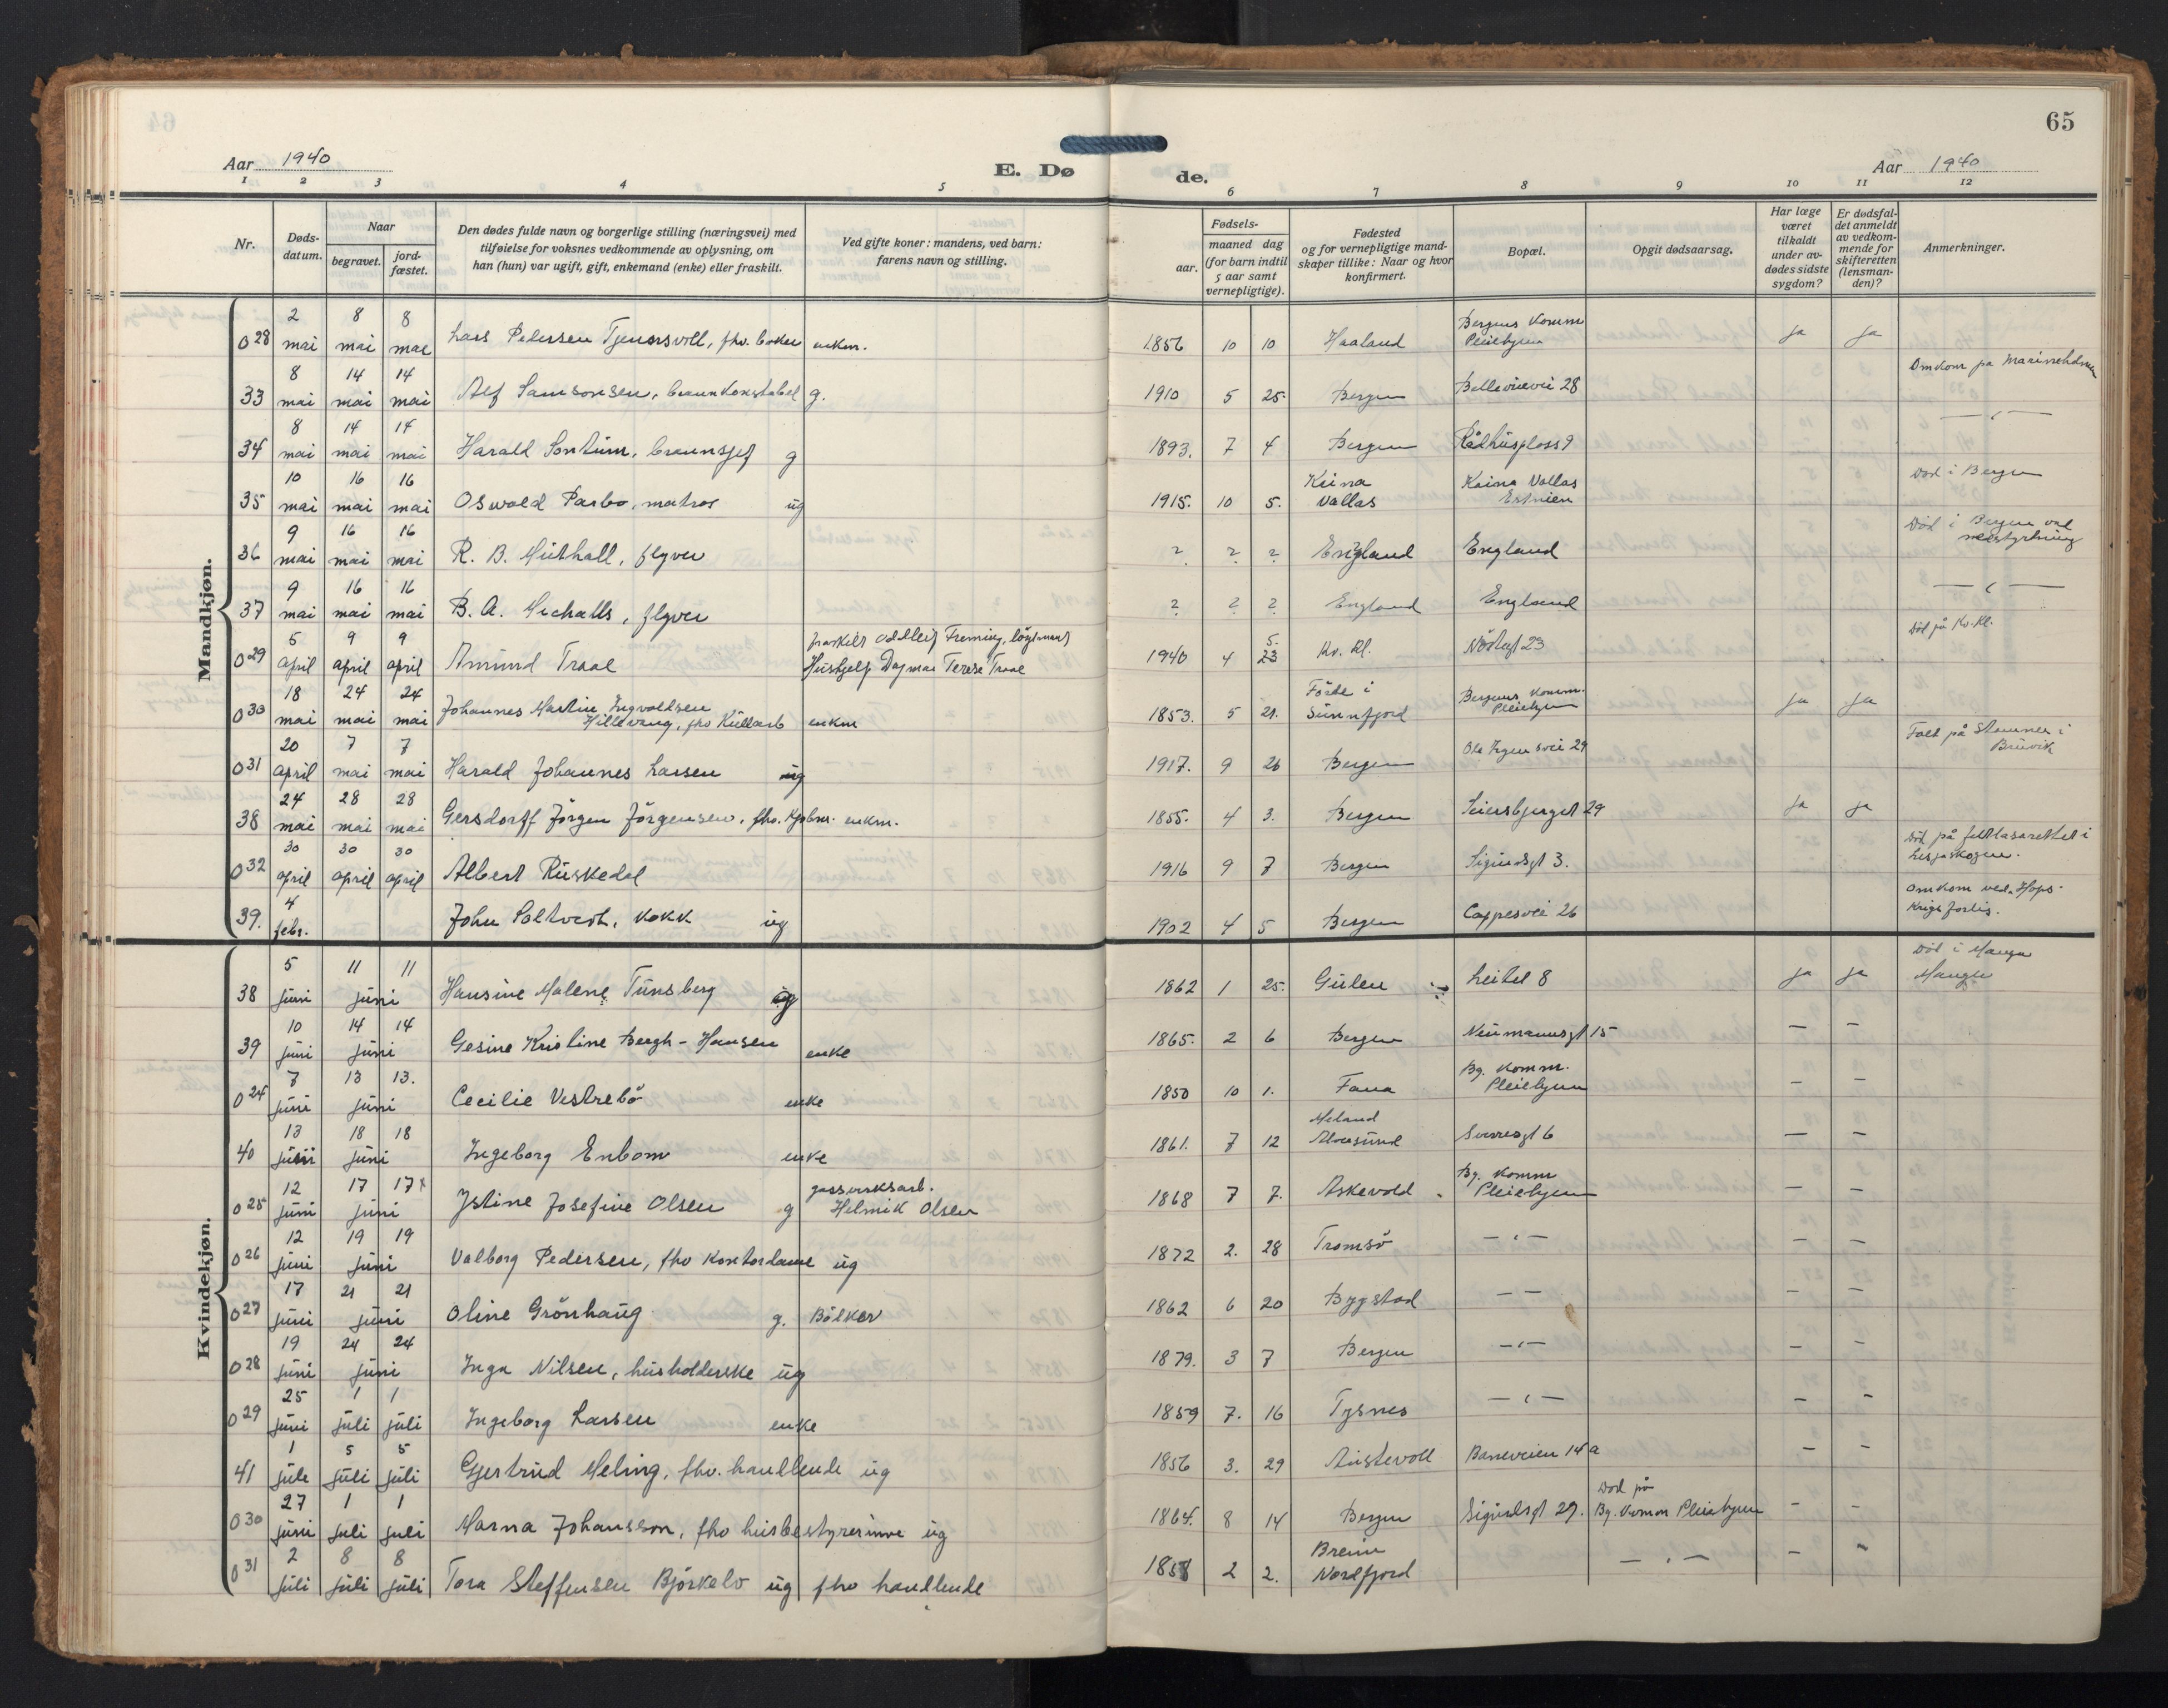 65
Aar 1940
E. Dø
de.
Aar 1940
1 2 3 4 5 6 7 8 9 10 11 12
Nr.
Døds-
datum.
Naar
begravet.
jord-
fæstet.
Den dødes fulde navn og borgerlige stilling (næringsvei) med
tilføielse for voksnes vedkommende av oplysning, om
han (hun) var ugift, gift, enkemand (enke) eller fraskilt.
Ved gifte koner: mandens, ved barn:
farens navn og stilling.
Fødsels-
aar.
maaned dag
(for barn indtil
5 aar samt
vernepligtige).
Fødested
og for vernepligtige mand-
skaper tillike: Naar og hvor
konfirmert.
Bopæl.
Opgit dødsaarsag.
Har læge
været
tilkaldt
under av-
dødes sidste
sygdom?
Er dødsfal-
det anmeldt
av vedkom-
mende for
skifteretten
(lensman-
den)?
Anmerkninger.
Mandkjøn.
028 2 mai 8 mai 8 mai Lars Petersen fhv. enkm. 1856 10 10 Haaland Bergens Komm Pleiehjem ja ja
33 8 mai 14 mai 14 mai Alf Samsonsen, brannkonstabel g. 1910 5 25. Bergen Bellevuevei 28 Omkom på Marineholmen
34 8 mai 14 mai 14 mai Harald Sontum, brannsjef g 1893. 7 4 Bergen Rådhusplass 9 — " —
35 10 mai 16 mai 16 mai Oswald Parbo, matros ug 1915. 10 5. Vallas Vallas Død i Bergen
36 9 mai 16 mai 16 mai R. B. flyver ? ? ? England England Død i Bergen ved nedstyrtning
37 9 mai 16 mai 16 mai B. A. flyver ? ? ? England England — " —
029 5 april 9 april 9 april Amund Traae Hushjelp Dagmar Terese Traae 1940 4 5. 23 Kv. Kl. Nöstegt 23 Död på Kv. Kl.
030 18 mai 24 mai 24 mai Johannes Martin Ingvaldsen Hillevang, fhv enkm 1853. 5 21. Förde i Sunnfjord Bergens Komm. Pleiehjem ja ja
031 20 april 7 mai 7 mai Harald Johannes Larsen ug 1917. 9 26 Bergen Ole Irgens vei 29 Falt på Stamnes i Bruvik
38 24 mai 28 mai 28 mai Gersdorff Jörgen Jörgensen, fhv. enkm. 1855. 4 3. Bergen 29 ja ja
032 30 april 30 april 30 april Albert Ruskedal 1916 9 7 Bergen Sigurdsgt 3. Död på feltlasarettet i Lesjaskogen.
39. 4 febr. John Saltvedt, kokk ug 1902 4 5 Bergen Cappesvei 26 Omkom ved Krigsforlis.
Kvindekjøn.
38 5 juni 11 11 juni Hansine Malene Tunsberg ug 1862 1 25. Gulen Leitet 8 ja ja Död i Manger
39 10 juni 14 14 juni Gesine Kristine Bergh-Hansen enke 1865. 2 6 Bergen Neumannsgt 15 — —
024 7 juni 13 13. juni Cecilie Vestrebö enke 1850 10 1. Fana Bg. Komm. Pleiehjem — —
40 13 juni 18 18 juni Ingeborg Enbom enke 1861. 7 12 Meland Alversund Sverresgt 6 — —
025 12 juni 17 17 juni Istine Josefine Olsen g gassverksarb. Helmik Olsen 1868 7 7. Askevold Bg. Komm Pleiehjem — —
026 12 juni 19 19 juni Valborg Pedersen, fhv kontordame ug 1872 2. 28 Tromsö — " — — —
027 17 juni 21 21 juni Oline Grönhaug g. Bölker 1862 6 20 Bygstad — — — —
028 19 juni 24 24 juni Inga Nilsen, husholderske ug 1879. 3 7 Bergen — " — — —
029 25 juni 1 juli 1 juli Ingeborg Larsen enke 1859 7. 16 Tysnes — " — — —
41 1 juli 5 juli 5 juli Gjertrud Meling, fhv. handlende ug 1856 3. 29 Austevoll Baneveien 14a — —
030 27 juni 1 juli 1 juli Marna Johansson, fhv husbestyrerinne ug 1864. 8 14 Bergen Sigurdsgt 29. Död på Bg. Komm Pleiehjem — —
031 2 juli 8 juli 8 juli Tora Steffensen Björkelo ug fhv handlende 1858 2 2. Breim Nordfjord — " — — —